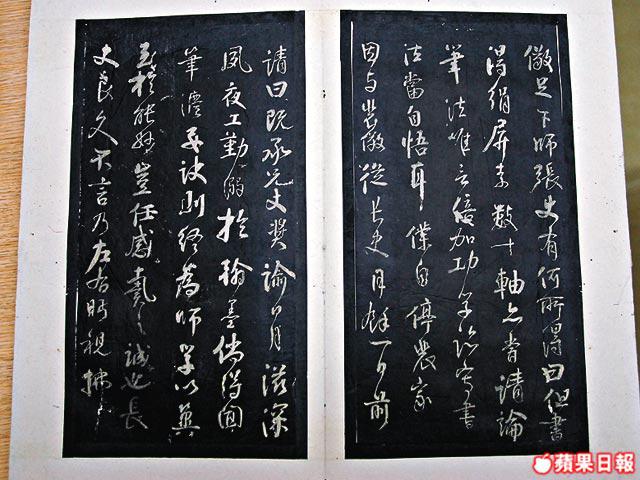 儆足下師張史有何所得曰但書
得絹屏素數十軸亦嘗請論
筆法唯言倍加功學臨寫書
法當自悟耳僕自停裴家
因与裴儆從長史月餘一日前
請曰既承兄丈獎諭日月滋深
夙夜工勤溺於翰墨儻得聞
筆法要訣則終為師學以冀
至於能妙豈任感戴之誠也長
史良久不言乃左右眄視拂
蘋果日報